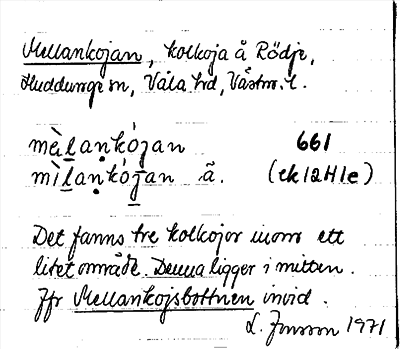 Mellankojan, kolkoja å Rödje,
Huddunge sn, Våla hd, Västm. l.
mèl̲aṇkójan 661
mìl̲aṇkój̲an ã. (ek 12H1e)
Det fanns tre kolkojor inom ett
litet område. Denna ligger i mitten.
Jfr Mellankojsbottnen invid.
L. Jonsson 1971